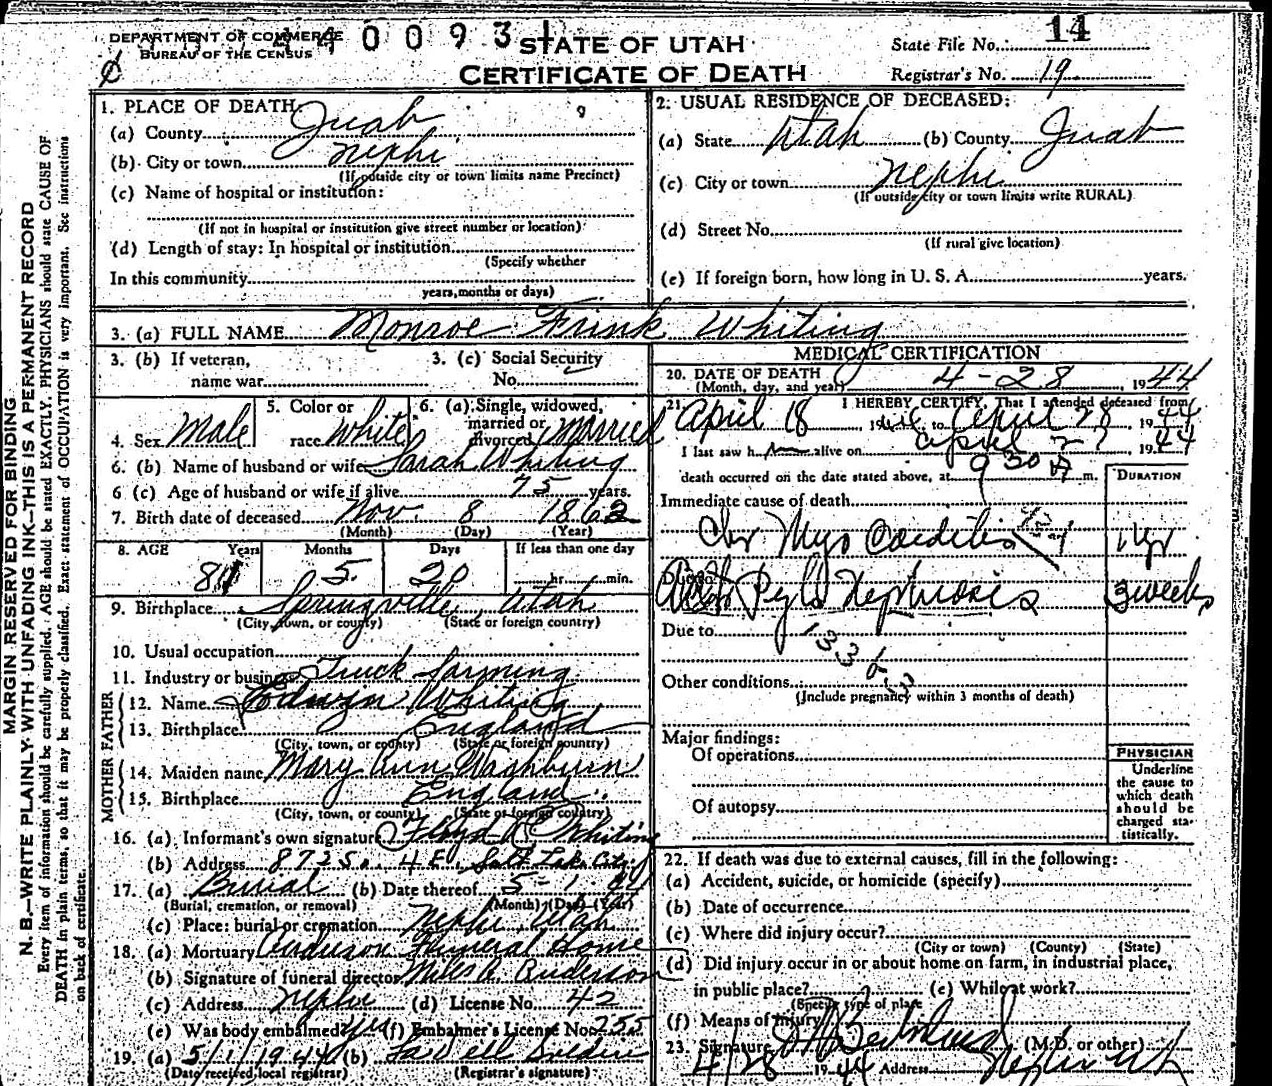 DEPARTMENT OF COMMERCE
BUREAU OF THE CENSUS
440093
STATE OF UTAH
CERTIFICATE OF DEATH
State File No. 14
Registrar's No. 19
MARGIN RESERVED FOR BINDING.
N. B.—WRITE PLAINLY WITH UNFADING INK—THIS IS A PERMANENT RECORD
Every item of information should be carefully supplied. AGE should be stated EXACTLY. PHYSICIANS should state CAUSE OF
DEATH in plain terms, so that it may be properly classified. Exact statement of OCCUPATION is very important. See instructions
on back of certificate.
1. PLACE OF DEATH: 9
(a) County Juab
(b) City or town Nephi
(If outside city or town limits name Precinct)
(c) Name of hospital or institution:
(If not in hospital or institution give street number or location)
(d) Length of stay: In hospital or institution
(Specify whether
In this community
years, months or days)
2. USUAL RESIDENCE OF DECEASED:
(a) State Utah (b) County Juab
(c) City or town Nephi
(If outside city or town limits write RURAL)
(d) Street No.
(If rural give location)
(e) If foreign born, how long in U. S. A. years.
3. (a) FULL NAME Monroe Frink Whiting
3. (b) If veteran,
name war
3. (c) Social Security
No.
4. Sex Male
5. Color or
race White
6. (a) Single, widowed,
married or
divorced Married
6. (b) Name of husband or wife Sarah Whiting
6 (c) Age of husband or wife if alive 75 years.
7. Birth date of deceased Nov. 8 1862
(Month) (Day) (Year)
8. AGE Years Months Days If less than one day
81 5 20 hr. min.
9. Birthplace Springville, Utah
(City, town, or county) (State or foreign country)
10. Usual occupation
11. Industry or business Truck farming
FATHER
12. Name Edwin Whiting
13. Birthplace England
(City, town, or county) (State or foreign country)
MOTHER
14. Maiden name Mary Ann Washburn
15. Birthplace England
(City, town, or county) (State or foreign country)
16. (a) Informant's own signature Floyd Whiting
(b) Address 872 So. 4 E. Salt Lake City
17. (a) Burial (b) Date thereof 5-1-44
(Burial, cremation, or removal) (Month) (Day) (Year)
(c) Place: burial or cremation Nephi, Utah
18. (a) Mortuary Anderson Funeral Home
(b) Signature of funeral director Miles A. Anderson
(c) Address Nephi (d) License No. 42
(e) Was body embalmed? Yes (f) Embalmer's License No. 255
19. (a) 5/1/1944 (b)
(Date received local registrar) (Registrar's signature)
MEDICAL CERTIFICATION
20. DATE OF DEATH
(Month, day, and year) 4-28, 1944
21. I HEREBY CERTIFY, That I attended deceased from
April 18 19 to April 28 1944
I last saw h alive on April 27 1944
death occurred on the date stated above, at 9 30 A m.
DURATION
Immediate cause of death
Chr Myo Carditis 1 yr
Pyelo Nephrosis 3 weeks
Due to
133
Other conditions
(Include pregnancy within 3 months of death)
Major findings:
Of operations
Of autopsy
PHYSICIAN
Underline
the cause to
which death
should be
charged sta-
tistically.
22. If death was due to external causes, fill in the following:
(a) Accident, suicide, or homicide (specify)
(b) Date of occurrence
(c) Where did injury occur?
(City or town) (County) (State)
(d) Did injury occur in or about home on farm, in industrial place,
in public place? (e) While at work?
(Specify type of place
(f) Means of injury
23. Signature (M.D. or other)
4/28 1944 Address Nephi Ut